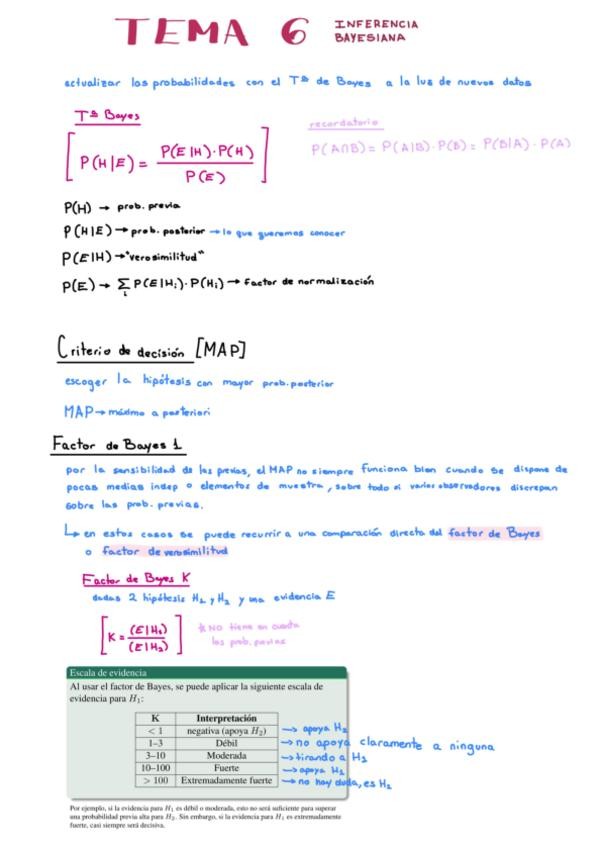 TEMA 6 INFERENCIA
BAYESIANA
actualizar las probabilidades con el Tª de Bayes a la luz de nuevos datos
Tª Bayes
P(H|E) = P(E|H)·P(H) / P(E)
recordatorio
P(A∩B) = P(A|B)·P(B) = P(B|A)·P(A)
P(H) → prob. previa
P(H|E) → prob. posterior → lo que queremos conocer
P(E|H) → "verosimilitud"
P(E) → ∑i P(E|Hi)·P(Hi) → factor de normalización
Criterio de decisión [MAP]
escoger la hipótesis con mayor prob. posterior
MAP → máximo a posteriori
Factor de Bayes 1
por la sensibilidad de las previas, el MAP no siempre funciona bien cuando se dispone de
pocas medias indep o elementos de muestra, sobre todo si varios observadores discrepan
sobre las prob. previas.
↳ en estos casos se puede recurrir a una comparación directa del factor de Bayes
o factor de verosimilitud
Factor de Bayes K
dadas 2 hipótesis H1 y H2 y una evidencia E
[K = (E|H1) / (E|H2)]
* NO tiene en cuenta
las prob. previas
Escala de evidencia
Al usar el factor de Bayes, se puede aplicar la siguiente escala de
evidencia para H1:
K Interpretación
< 1 negativa (apoya H2) → apoya H2
1–3 Débil → no apoya claramente a ninguna
3–10 Moderada → tirando a H1
10–100 Fuerte → apoya H1
> 100 Extremadamente fuerte → no hay duda, es H1
Por ejemplo, si la evidencia para H1 es débil o moderada, esto no será suficiente para superar
una probabilidad previa alta para H2. Sin embargo, si la evidencia para H1 es extremadamente
fuerte, casi siempre será decisiva.